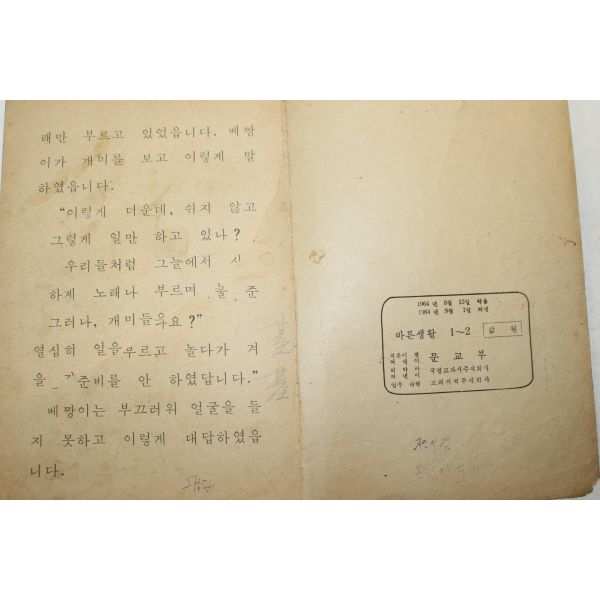 래만 부르고 있었읍니다. 베짱
이가 개미를 보고 이렇게 말
하였읍니다.
“이렇게 더운데, 쉬지 않고
그렇게 일만 하고 있나?
우리들처럼 그늘에서
하게 노래나 부르며 준
그러나, 개미들 요?”
열심히 일을 무르고 놀다가 겨
을 준비를 안 하였답니다.”
베짱이는 부끄러워 얼굴을 들
지 못하고 이렇게 대답하였읍
니다.
1964 년 8월 15일 박음
1964 년 9월 1일 펴냄
바른생활 1~2 값 원
지은이 겸 펴낸이 문교부
국정교과서주식회사
업무 대행 고려서적주식회사